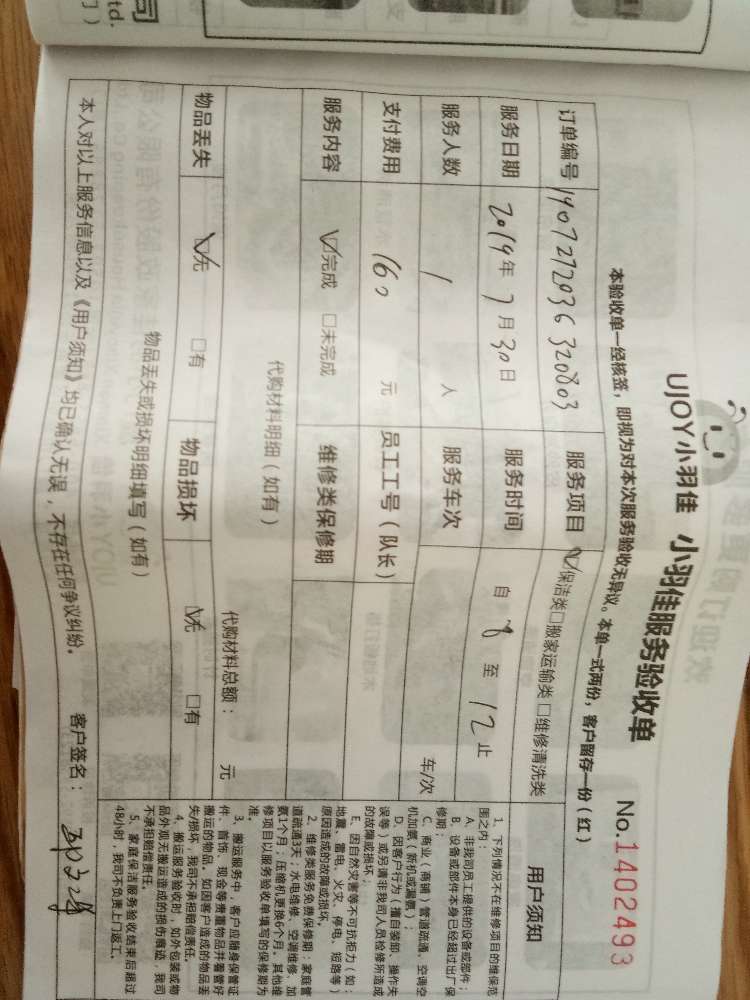 UJOY小羽佳 小羽佳服务验收单
No.1402493
本验收单一经核签，即视为对本次服务验收无异议。本单一式两份，客户留存一份（红）
订单编号 1907272036320803 服务项目 ☑保洁类□搬家运输类□维修清洗类
服务日期 2019年7月30日 服务时间 自 8 至 12 止
服务人数 1 人 服务车次 车/次
支付费用 160 元 员工工号（队长）
服务内容 ☑完成 □未完成 维修类保修期
代购材料明细（如有）
代购材料总额： 元
物品丢失 ☑无 □有 物品损坏 ☑无 □有
物品丢失或损坏明细填写（如有）
本人对以上服务信息以及《用户须知》均已确认无误，不存在任何争议纠纷。 客户签名：
用户须知
1、下列情况不在维修项目的维保范
围之内：
A、非我司员工提供的设备或部件；
B、设备或部件本身已经超过出厂保
修期；
C、商业（商铺）管道疏通、空调空
机加氨（新机或漏氨）；
D、因客户行为（擅自装卸、操作失
误等）或另请非我司人员检修所造成
的故障或损坏；
E、因自然灾害等不可抗拒力（如：
地震、雷电、火灾、停电、短路等）
原因造成的故障或损坏。
2、维修类服务免费保修期：家庭管
道疏通3天；水电维修、空调维修、加
氨1个月；压缩机更换6个月。其他维
修项目以服务验收单填写的保修期为
准。
3、搬运服务中，客户应随身保管证
件、首饰、现金等贵重物品并看管好
搬运的物品。如因客户造成的物品丢
失/损坏，我司不承担赔偿责任。
4、搬运服务验收时，如外包装或物
品外观无搬运造成的损伤痕迹，我司
不承担赔偿责任。
5、家庭保洁服务验收结束后超过
48小时，我司不负责上门返工。
司
td.